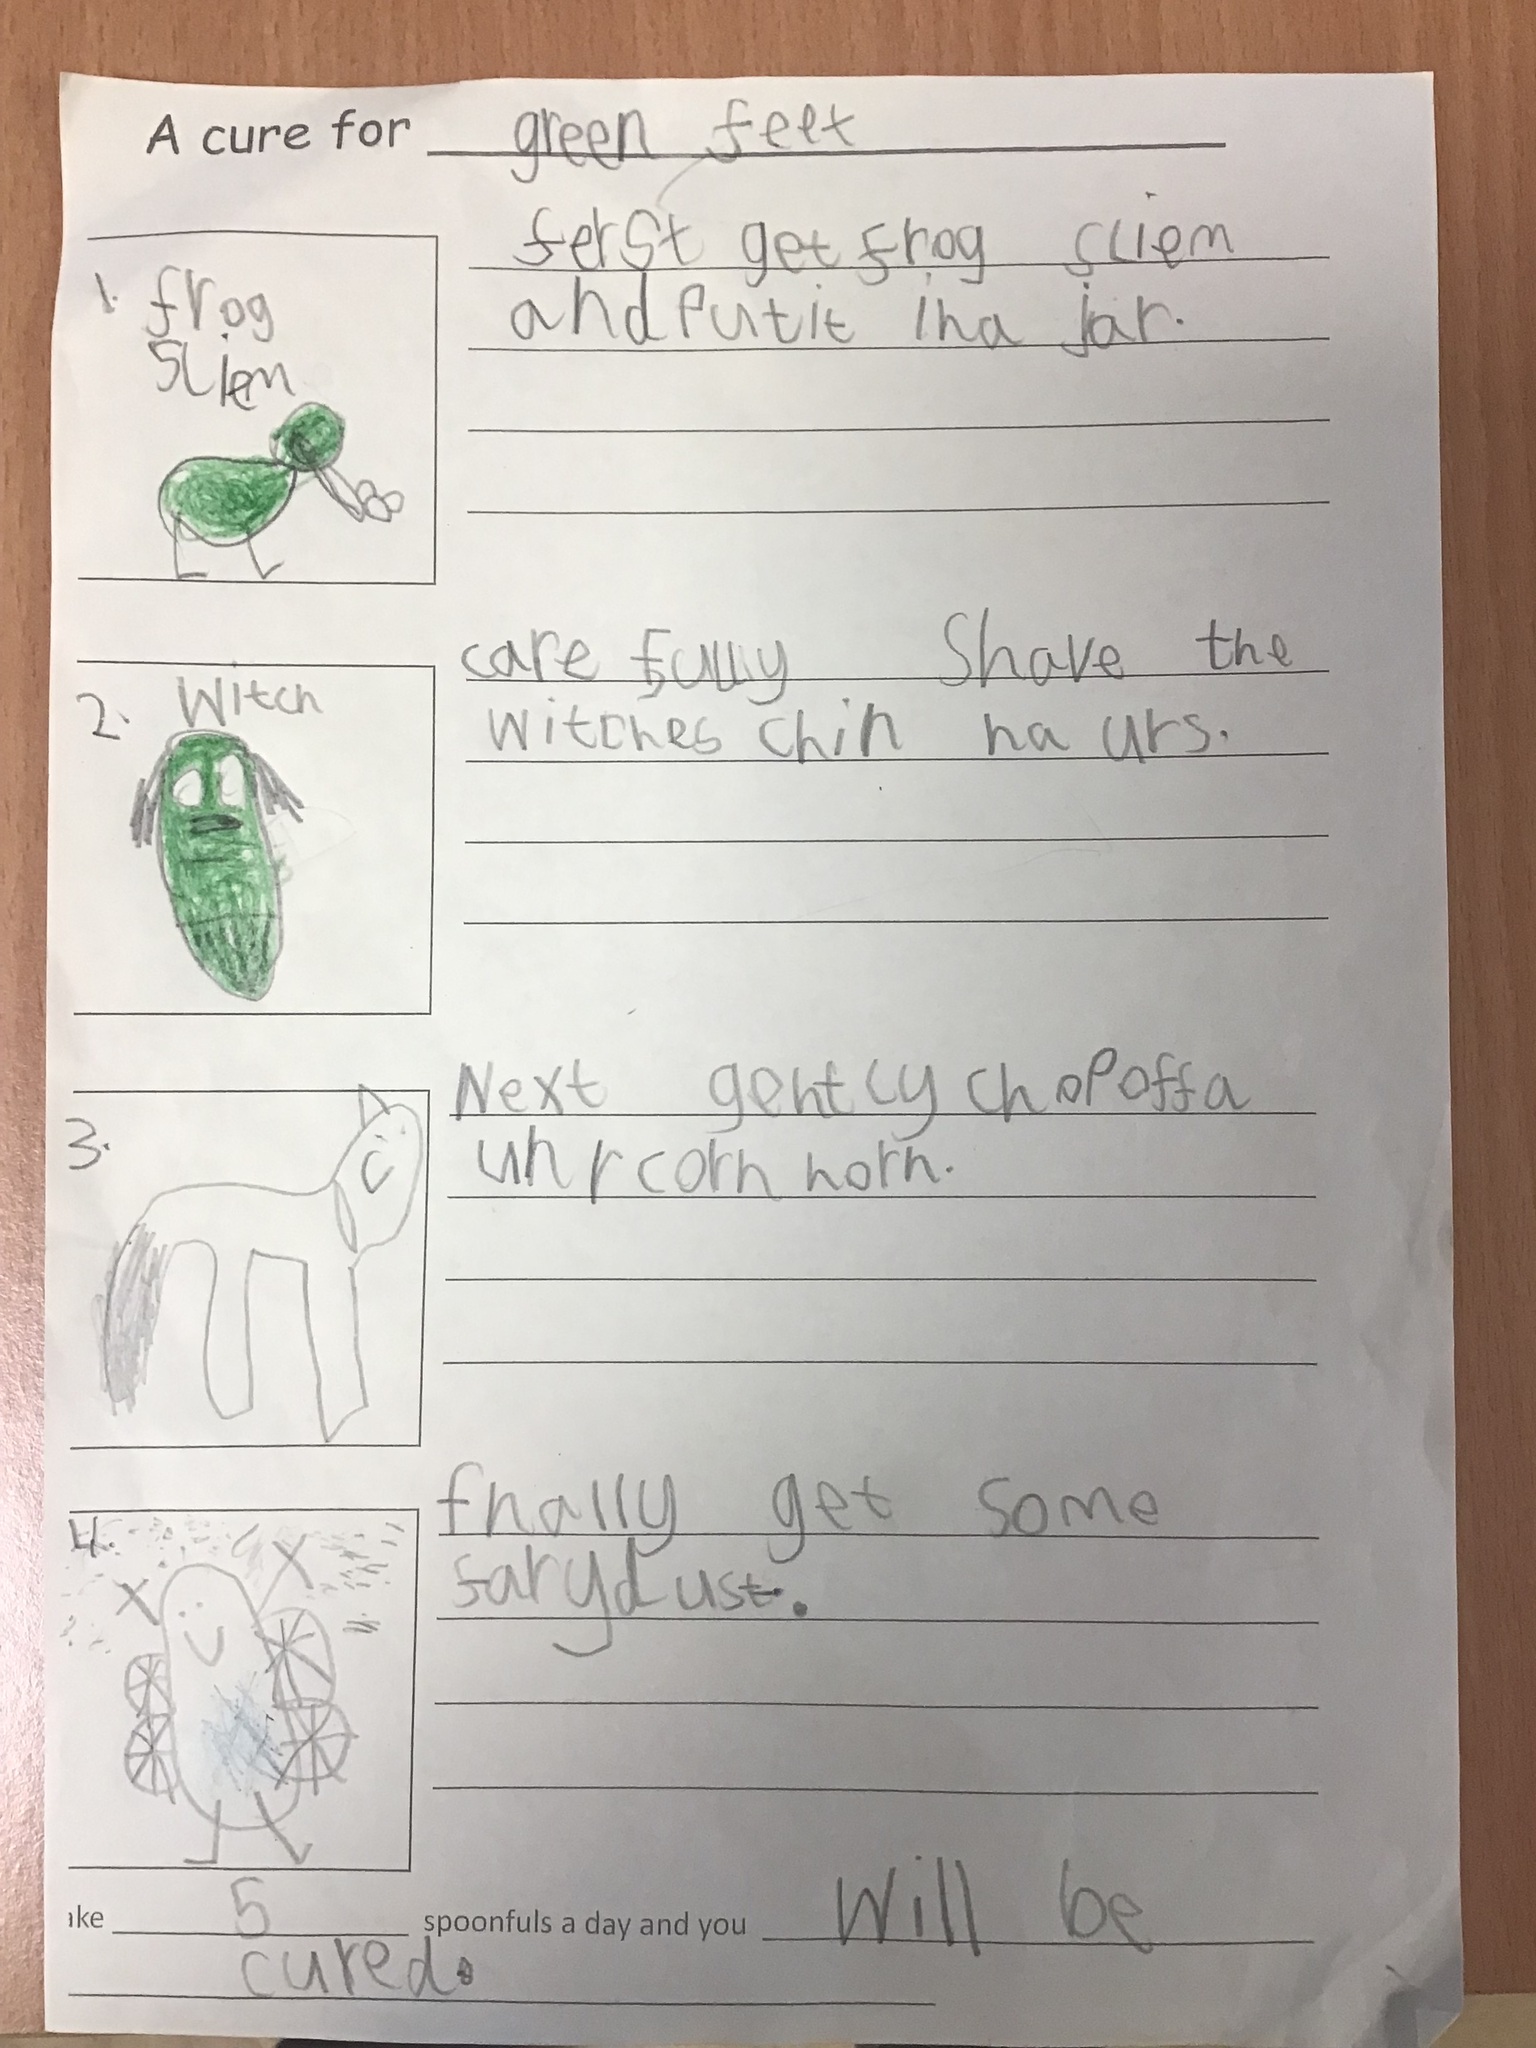 A cure for green feet
ferst get frog sliem
and put it in a jar.
1. frog
sliem
care fully Shave the
witches chin ha urs.
2. Witch
Next gently chop off a
unrcorn horn.
3.
fnally get some
farydust.
4.
ake 5 spoonfuls a day and you will be
cured.